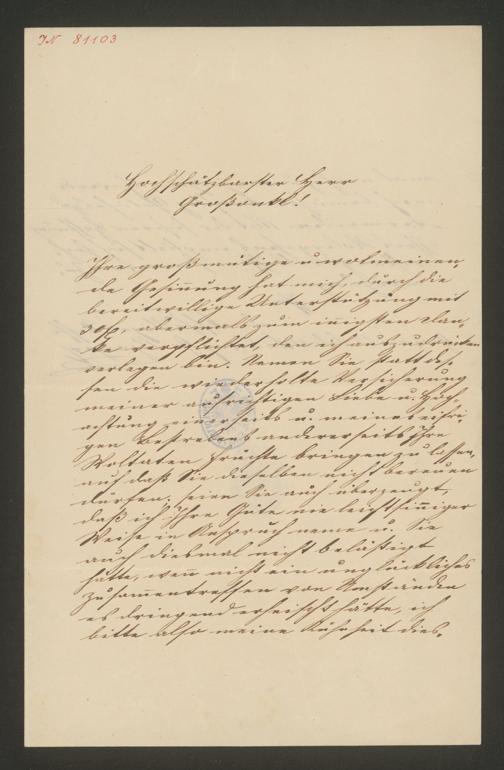 IN 81103
Hochschätzbarster Herr
Großonkl!
Ihre großmütige u. wolmeinen-
de Gesinnung hat mich, durch die
bereitwillige Unterstützung mit
30 f, abermals zum innigsten Dan-
ke verpflichtet, den ich auszudrücken
verlegen bin. Nemen Sie statt des-
sen die wiederholte Versicherung
meiner aufrichtigen Liebe u. Hoch-
achtung einerseits u. meines eifri-
gen Bestrebens andererseits Ihre
Woltaten Früchte bringen zu lassen,
auf daß Sie dieselben nicht bereuen
dürfen. Seien Sie auch überzeugt,
daß ich Ihre Güte nie leichtsinniger
Weise in Anspruch neme u. Sie
auch diesmal nicht belästigt
hätte, wenn nicht ein unglückliches
Zusammentreffen von Umständen
es dringend erheischt hätte, ich
bitte also meine Kühnheit dies-